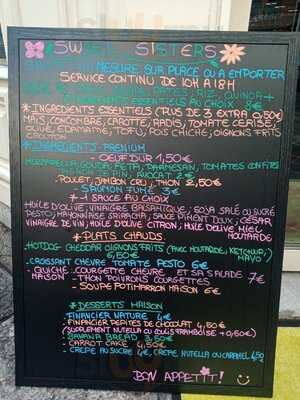 SWEET SISTERS
MESURE SUR PLACE OU A EMPORTER
SERVICE CONTINU DE 10H A 18H
PATES, RIZ, QUINOA +
INGREDIENTS ESSENTIELS AU CHOIX 8€
*INGREDIENTS ESSENTIELS (PLUS DE 3 EXTRA 0,50€)
MAIS, CONCOMBRE, CAROTTE, RADIS, TOMATE CERISE,
OLIVE, EDAMAME, TOFU, POIS CHICHE, OIGNONS FRITS
CROUTON
*INGREDIENTS PREMIUM
OEUF DUR 1,50€
MOZZARELLA, GOUDA, FETA, PARMESAN, TOMATES CONFITES
PIGNON DE PIN, AVOCAT 2€
-POULET, JAMBON CRU, THON 2,50€
- SAUMON FUMÉ 3€
*-1 SAUCE AU CHOIX
HUILE D'OLIVE, VINAIGRE BALSAMIQUE, SOJA SALÉ OU SUCRÉ
PESTO, MAYONNAISE SRIRACHA, SAUCE PIMENT DOUX, CESAR
VINAIGRE DE VIN, HUILE D'OLIVE CITRON, HUILE D'OLIVE MIEL
MOUTARDE
*PLATS CHAUDS
-HOTDOG- CHEDDAR OIGNONS FRITS (AVEC MOUTARDE, KETCHUP,
6,50€ MAYO
-CROISSANT CHEVRE TOMATE PESTO 6€
-QUICHE -COURGETTE CHEVRE ET SA SALADE 7€
MAISON -THON POIVRONS COURGETTES
- SOUPE POTIMARRON MAISON 6€
*DESSERTS MAISON
- FINANCIER NATURE 4€
- FINANCIER PEPITES DE CHOCOLAT 4,50€
(SUPPLEMENT NUTELLA OU COULIS FRAMBOISE +0,50€)
- BANANA BREAD 3,50€
- CARROT CAKE 4,50€
- CREPE AU SUCRE 4€, CREPE NUTELLA OU CARAMEL 4,50
BON APPETIT!